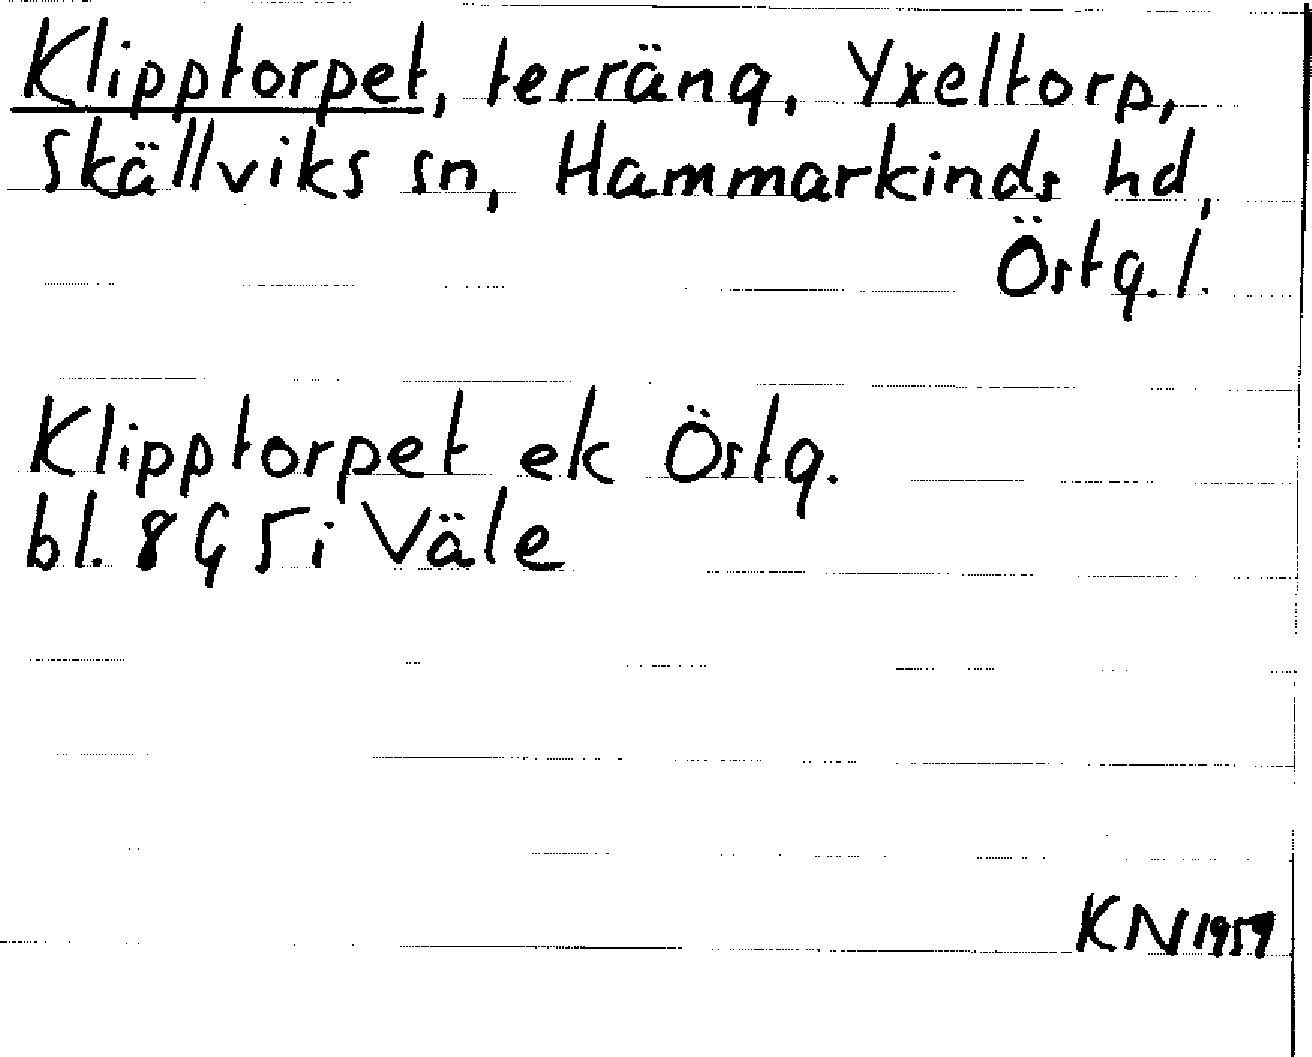 Klipptorpet, terräng, Yxeltorp,
Skällviks sn, Hammarkinds hd,
Östg. l.
Klipptorpet ek Östg.
bl. 8G5i Väle
KN 1959